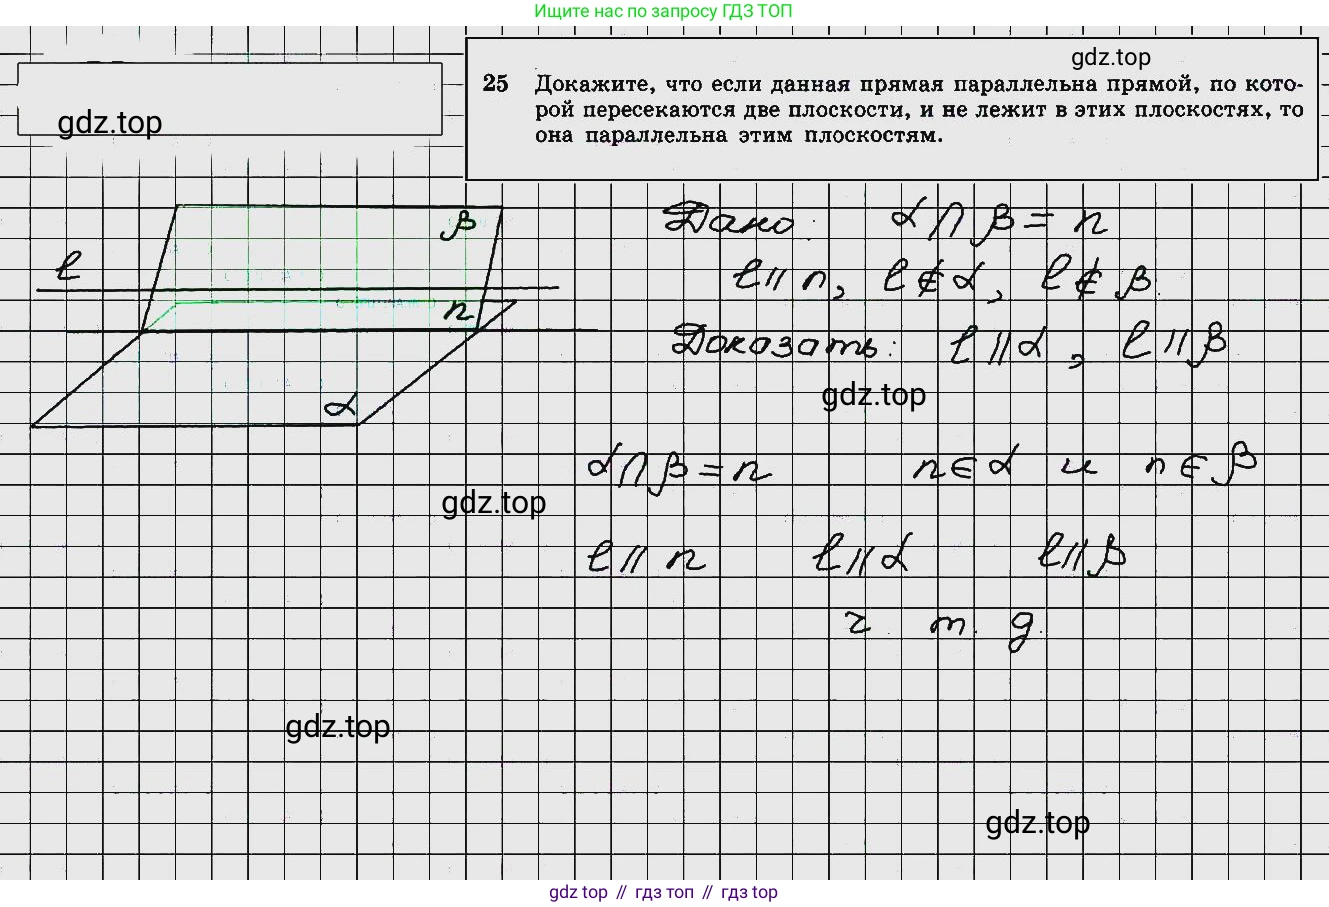 Ищите нас по запросу ГДЗ ТОП
gdz.top
25 Докажите, что если данная прямая параллельна прямой, по кото-
рой пересекаются две плоскости, и не лежит в этих плоскостях, то
она параллельна этим плоскостям.
gdz.top
β
l
n
α
Дано: α ∩ β = n
l ∥ n, l ∉ α, l ∉ β.
Доказать: l ∥ α, l ∥ β
gdz.top
α ∩ β = n n ∈ α и n ∈ β
gdz.top
l ∥ n l ∥ α l ∥ β
ч. т. д.
gdz.top
gdz.top
gdz top // гдз топ // gdz top